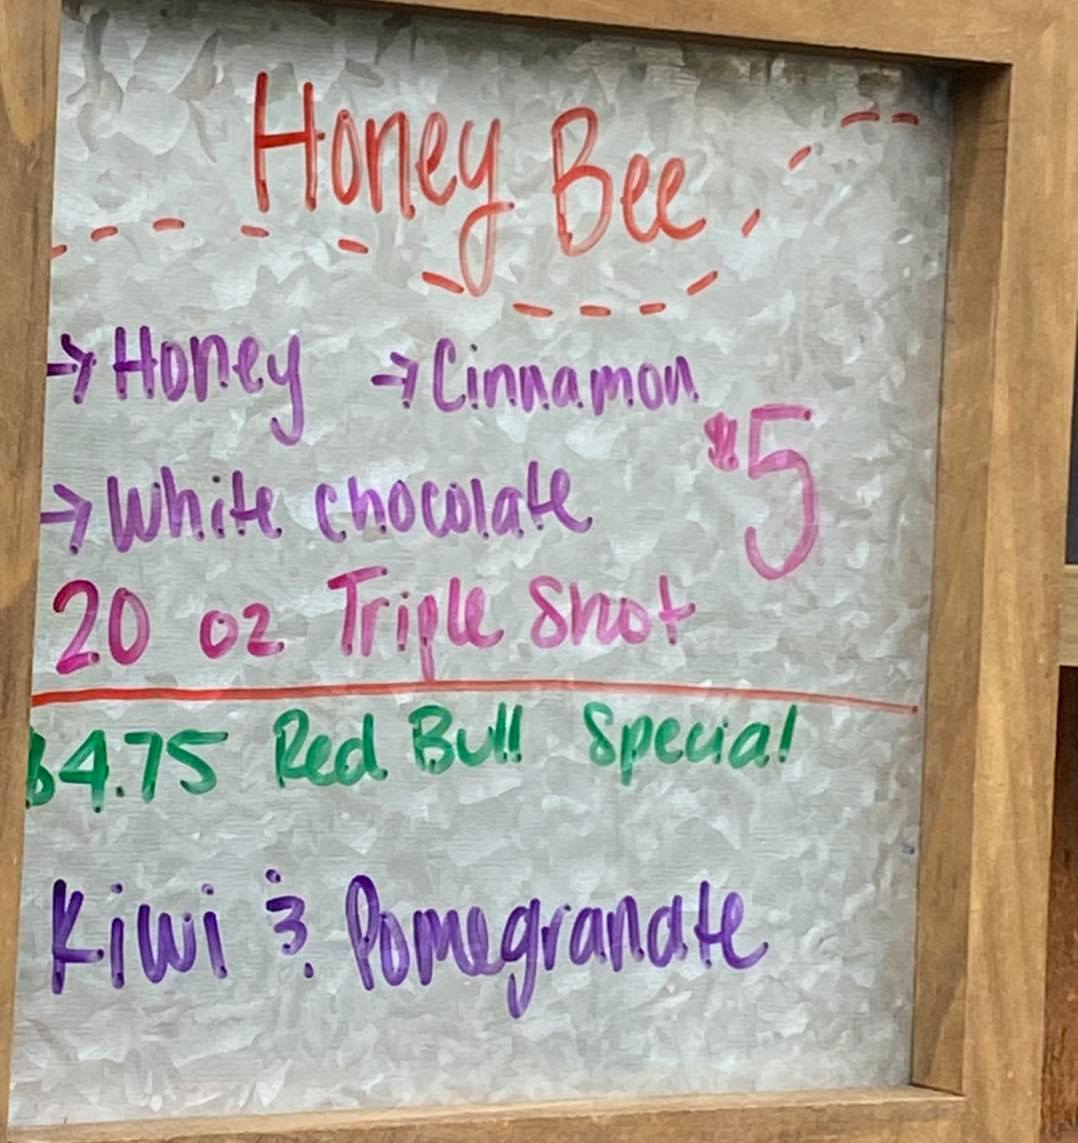 Honey Bee
→ Honey → Cinnamon
$5
→ White chocolate
20 oz Triple Shot
$4.75 Red Bull Special
Kiwi & Pomegranate